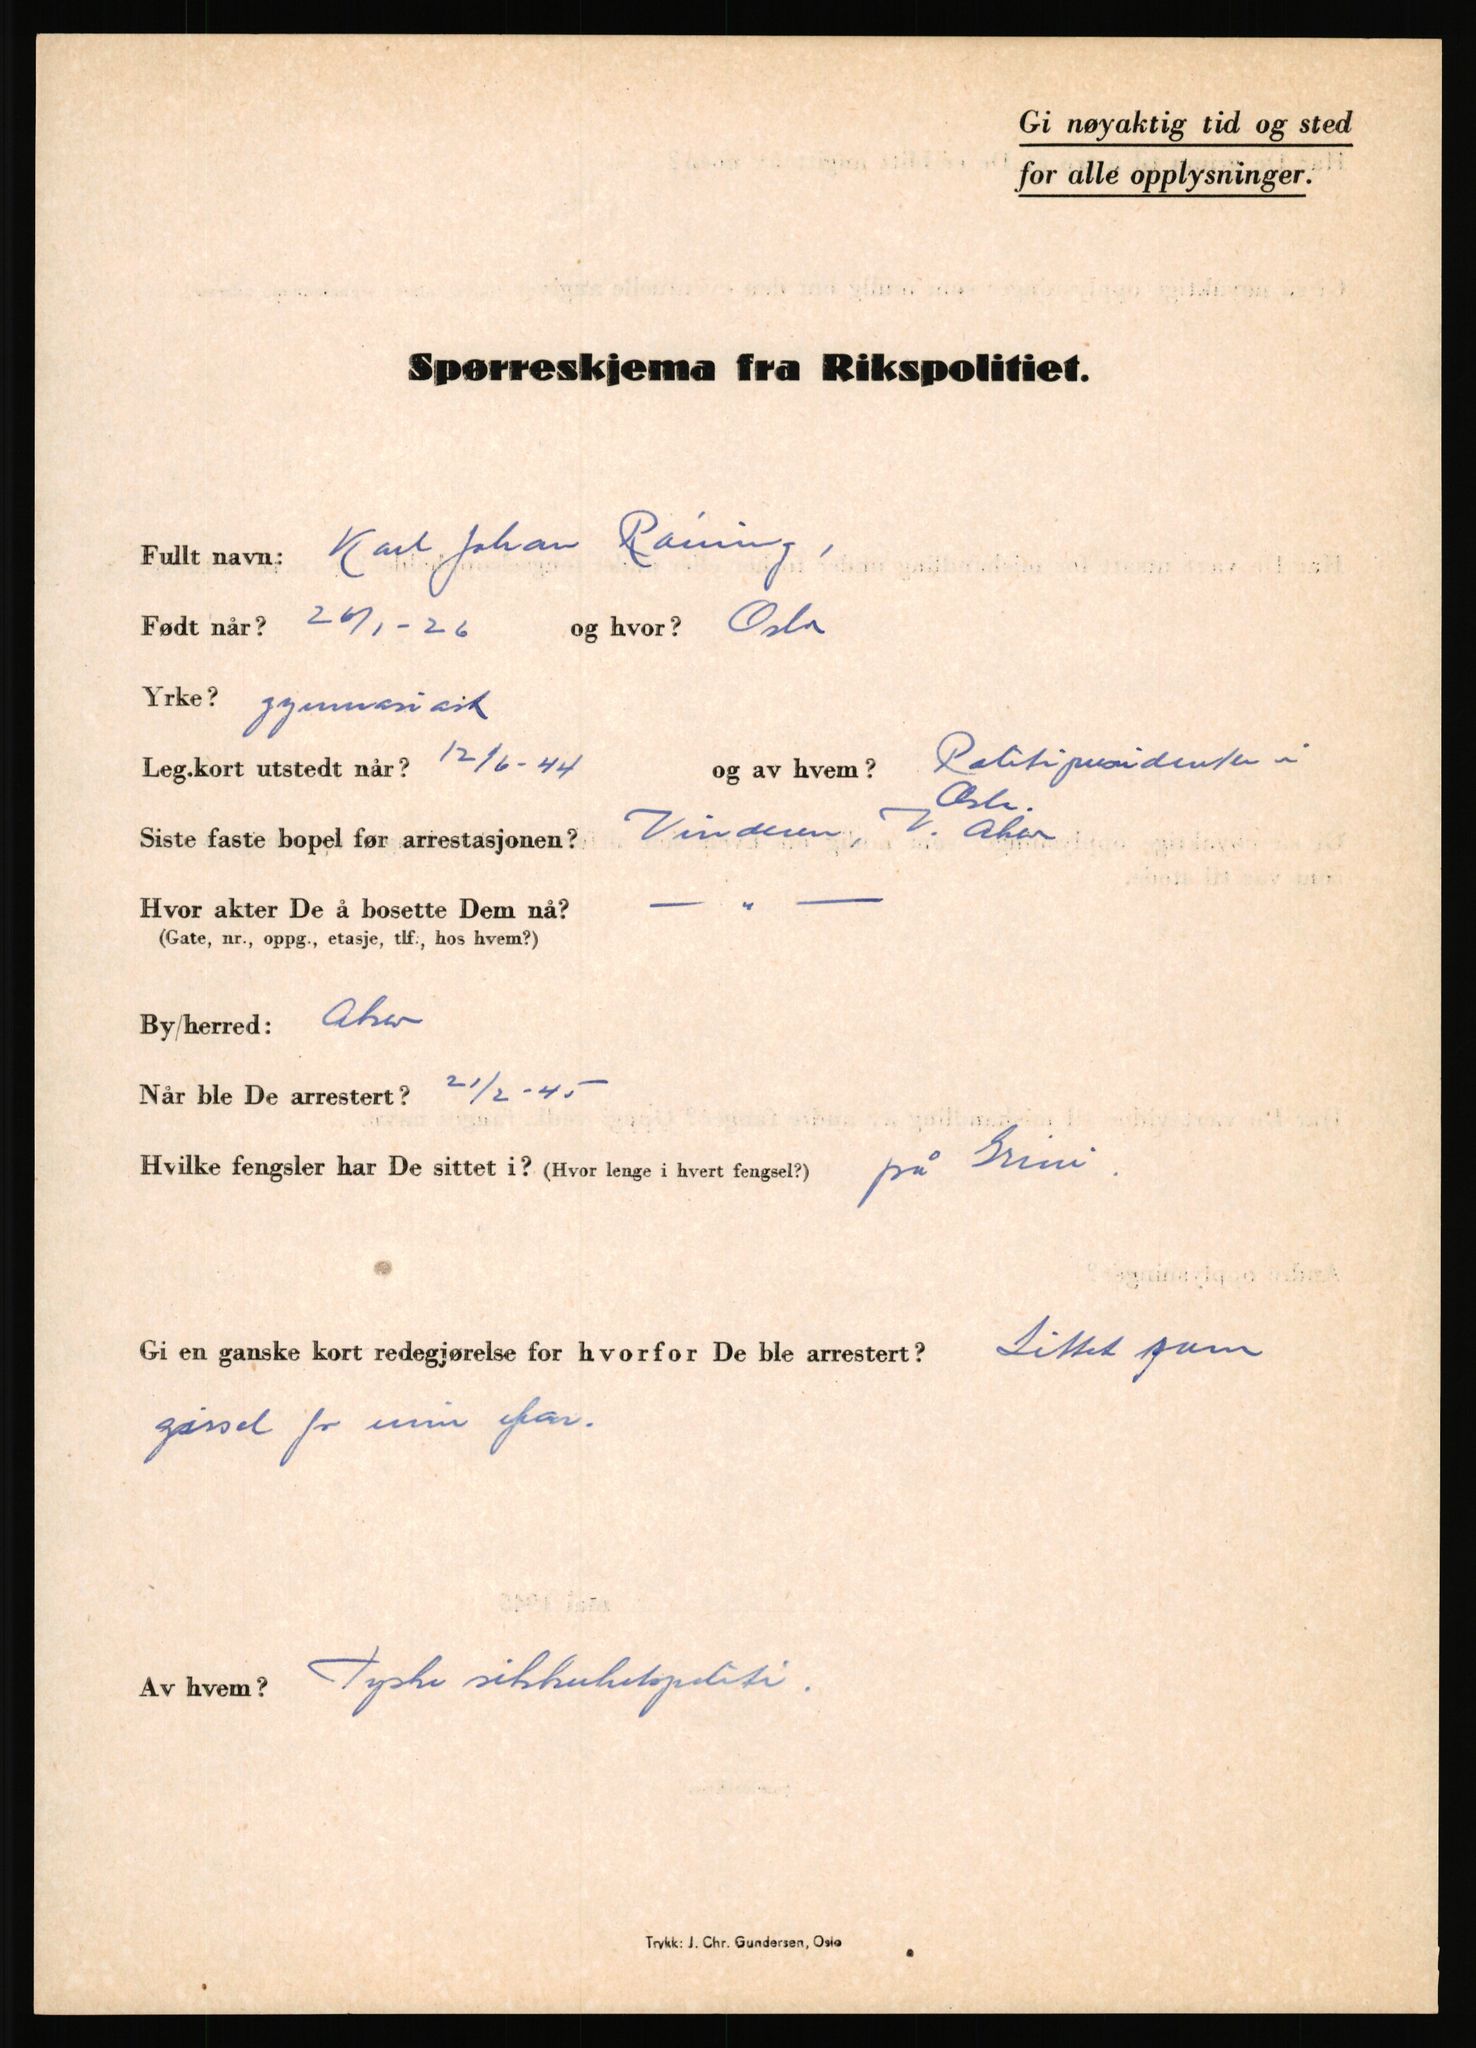 Gi nøyaktig tid og sted
for alle opplysninger.
Spørreskjema fra Rikspolitiet.
Fullt navn: Karl Johan
Født når? 26/1-26 og hvor? Oslo
Yrke? gymnasiast
Leg.kort utstedt når? 12/6-44 og av hvem? Politipresidenten i
Oslo.
Siste faste bopel før arrestasjonen? Vinderen, V. Aker
Hvor akter De å bosette Dem nå? — " —
(Gate, nr., oppg., etasje, tlf., hos hvem?)
By/herred: Aker
Når ble De arrestert? 21/2-45
Hvilke fengsler har De sittet i? (Hvor lenge i hvert fengsel?) på Grini.
Gi en ganske kort redegjørelse for hvorfor De ble arrestert? Sittet som
gissel for min far.
Av hvem? Tyske sikkerhetspoliti.
Trykk: J. Chr. Gundersen, Oslo